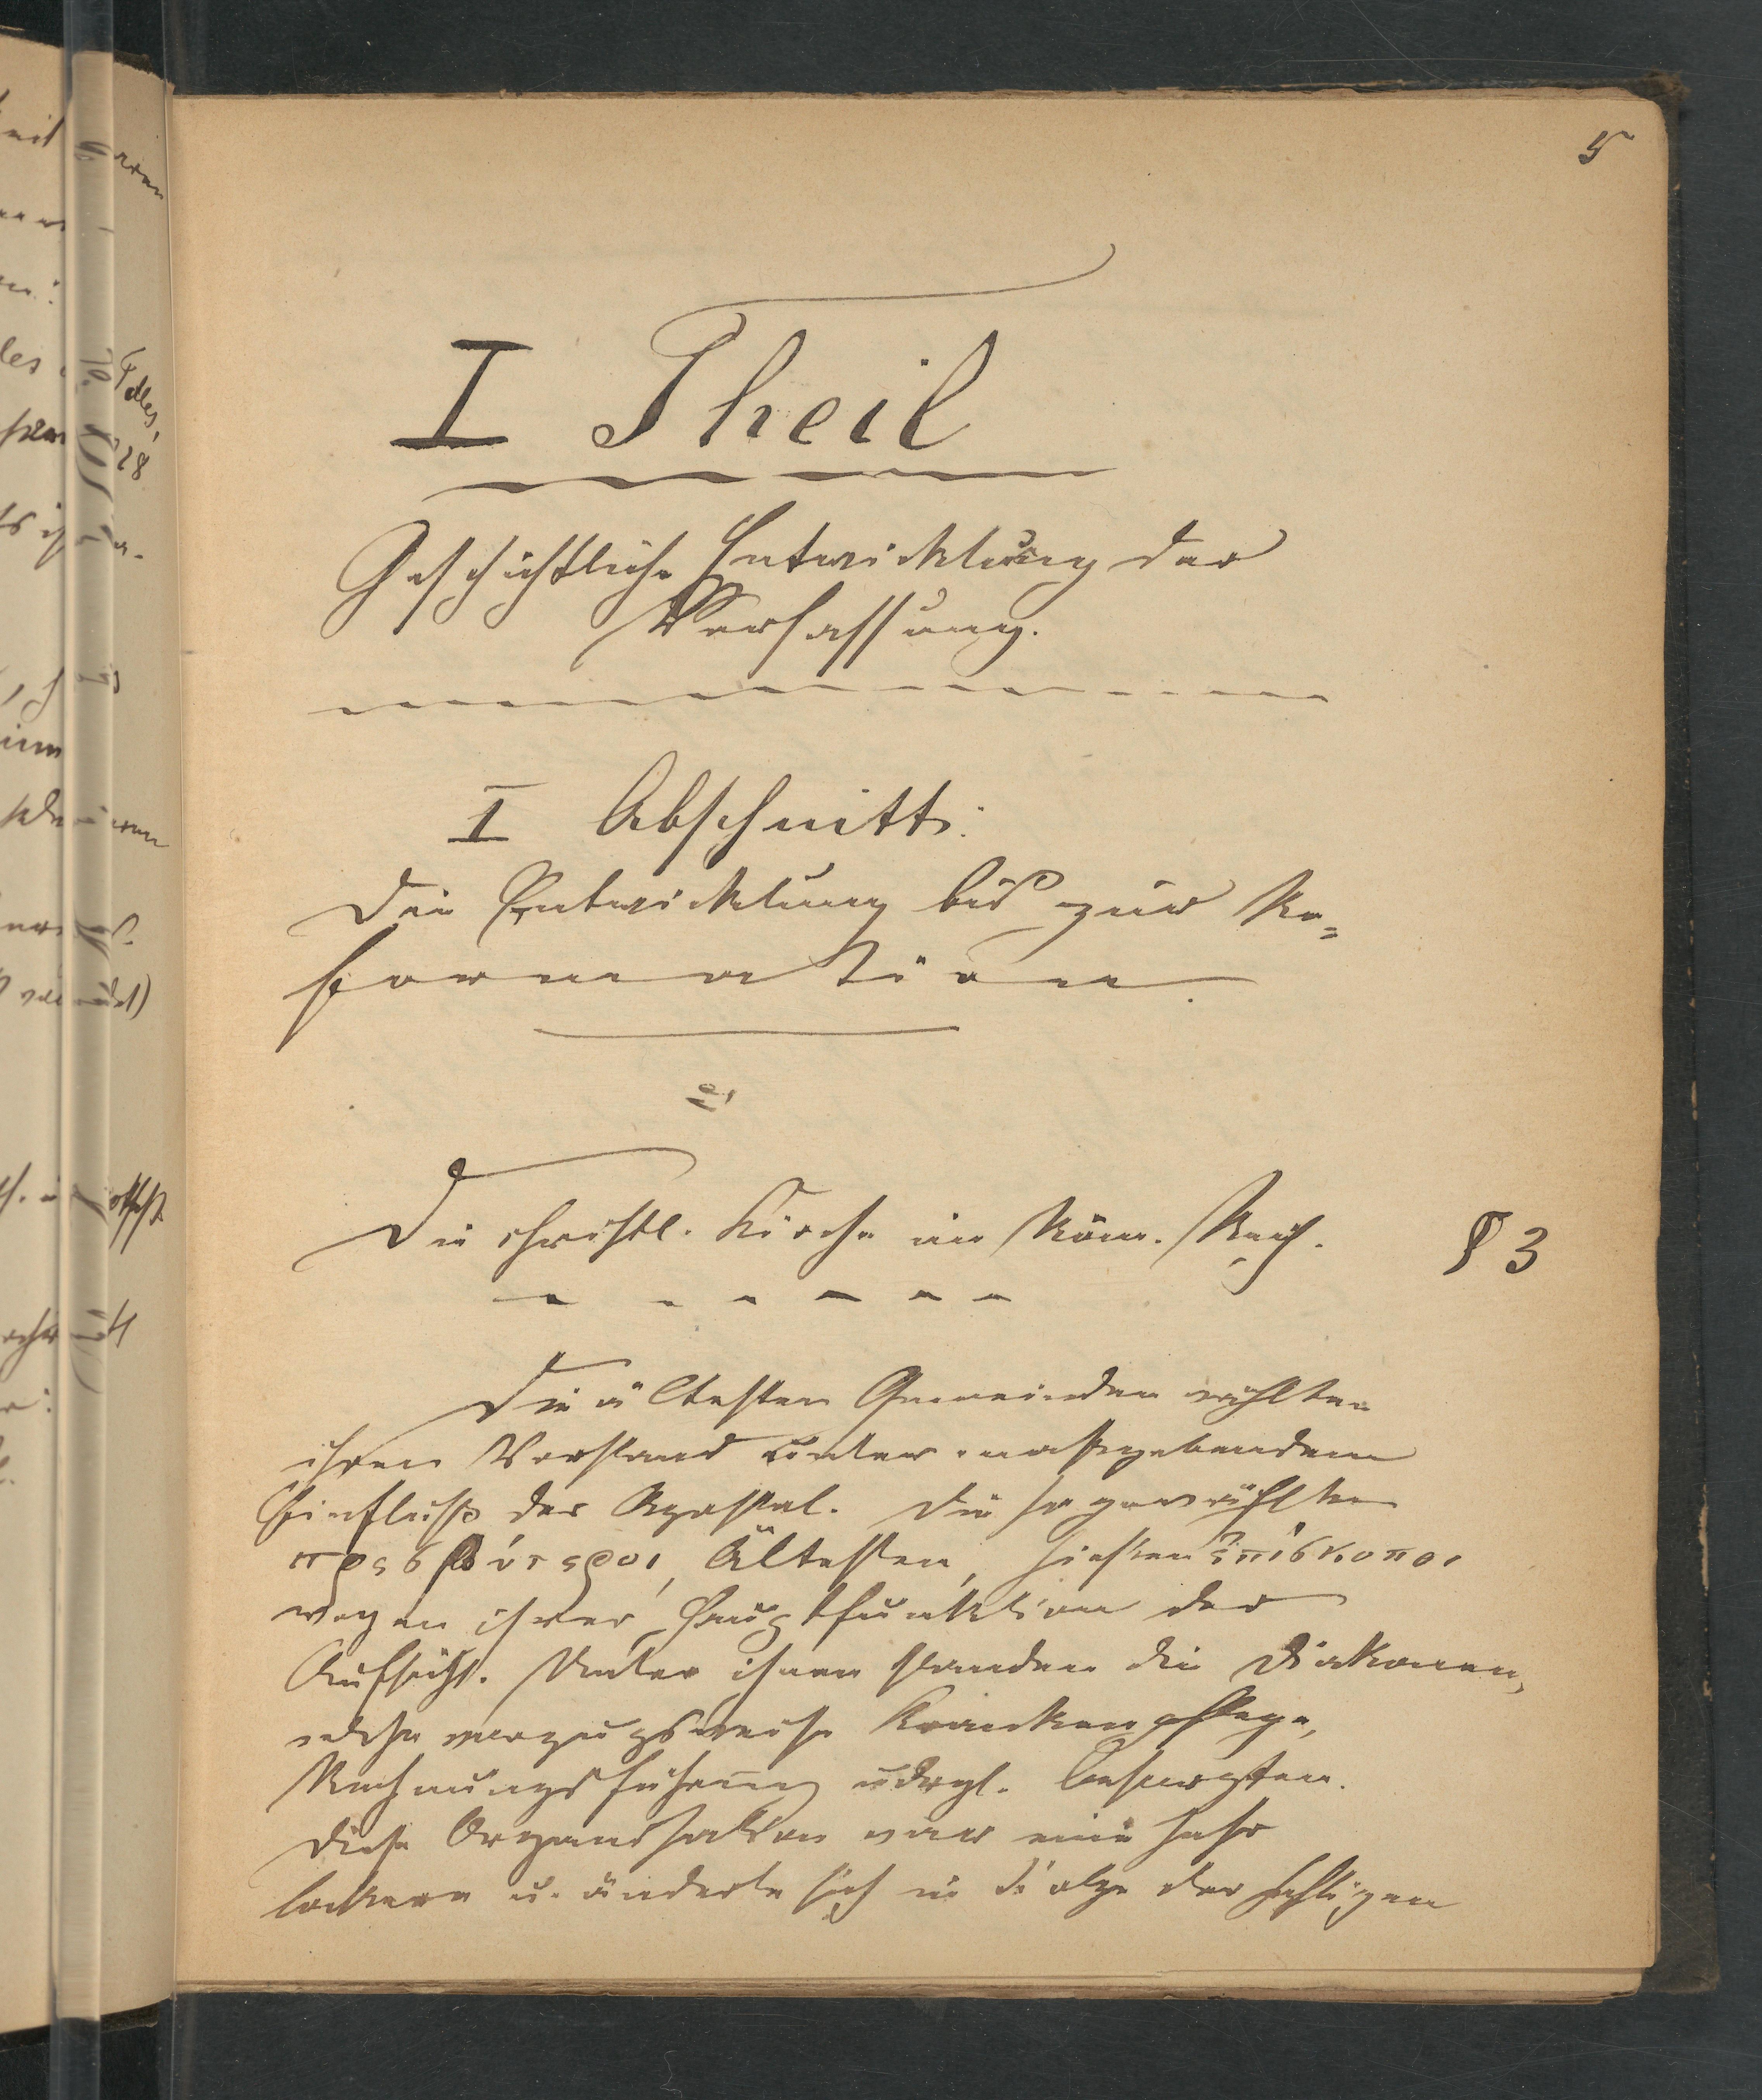 5
I Theil
Geschichtliche Entwicklung der
Verfassung.
I Abschnitt:
Die Entwicklung bis zur Re=
formation.
Die christl. Kirche im Röm. Reich.
§ 3
Die ältesten Gemeinden wählten
ihren Vorstand unter massgebendem
Einfluss der Apostel. Die so gewählten
πρεσβύτεροι, Ältesten, hiessen ἐπίσκοποι
wegen ihrer Hauptfunktion der
Aufsicht. Unter ihnen standen die Diakonen,
welche vorzugsweise Krankenpflege,
Rechnungsführung u. drgl. besorgten.
Diese Organisation war eine sehr
lockere u. änderte sich in Folge der